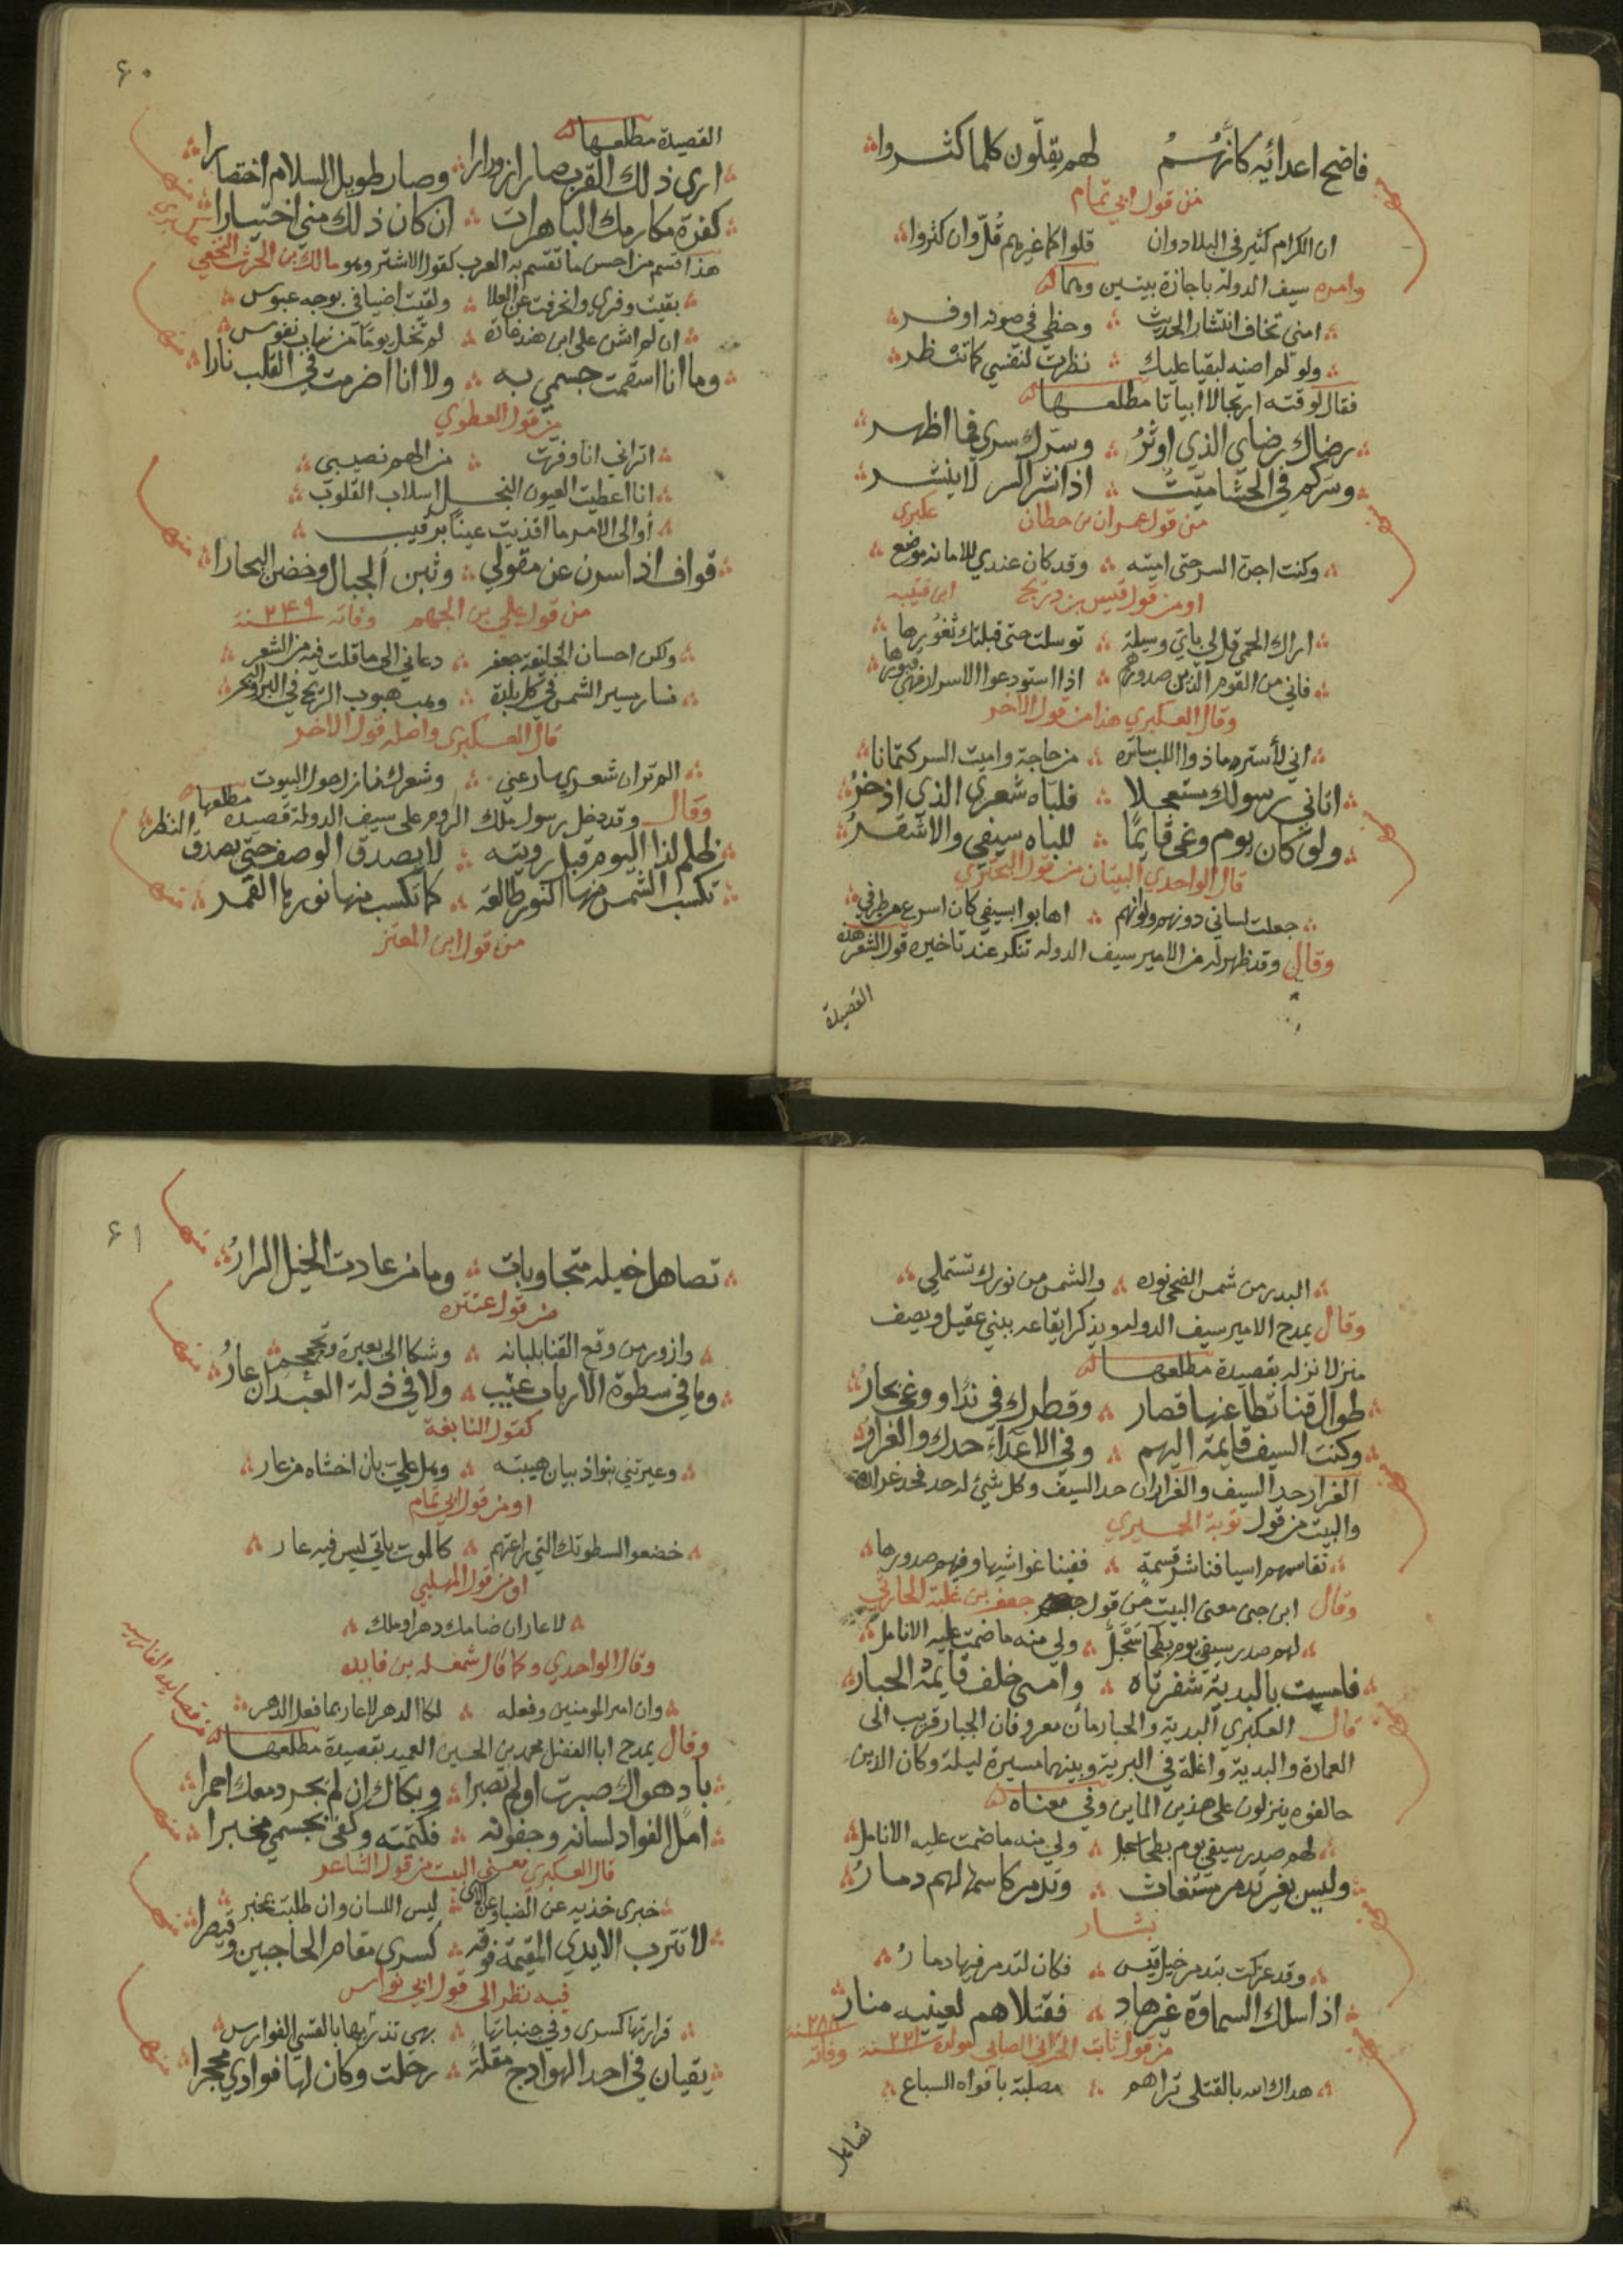 فاضح اعدائه كانهم لهم يقلّون كلما كثروا
من قول ابي تمام
ان الكرام كثير في البلاد وان قلوا كما غيرهم قُلّ وان كثروا
وامره سيف الدولة باجازة بيتين وهما
امني تخاف انتشار الحديث وحظي في صونه اوفر
ولو لم اصنه لبقيا عليك نظرت لنفسي كما تنظر
فقال لوقته ارتجالا ابياتا مطلعها
رضاك رضاي الذي اوثرُ وسرّك سري فما اظهر
وسركم في الحشا ميّتٌ اذا انشر السر لا ينشر
من قول عمران بن حطان عكبري
وكنت اجن السر حتى اميته وقد كان عندي للامانه موضع
او من قول قيس بن ذريح ابن قتيبه
اراك الحمى قل لي باي وسيلة توسلت حتى قبلتك ثغورها
فاني من القوم الذين صدورهم اذا استودعوا الاسرار فهي قبورها
وقال العكبري هذا من قول الاخر
اني لأستر ما ذو اللب ساتره من حاجة واميت السر كتمانا
اتاني رسولك مستعجلا فلباه شعري الذي اذخرُ
ولو كان يوم وغى قايمًا للباه سيفي والاشقرُ
قال الواحدي البيتان من قول البحتري
جعلت لساني دونهم ولو انهم اهابوا بسيفي كان اسرع من طرفي
وقال وقد ظهر له من الامير سيف الدوله تنكر عند تاخيره قول الشعر هذه
القصيدة
٦٠
القصيدة مطلعها
ارى ذلك القرب صار ازورارا وصار طويل السلام اختصارا
كفرت مكارمك الباهرات ان كان ذلك مني اختيارا
هذا قسم من احسن ما تقسم به العرب كقول الاشتر وهو مالك بن الحرث النخعي
بقيت وفري وانحرفت عن العلا ولقيت اضيافي بوجه عبوس
ان لم اشن على ابن هند غارة لم تخل يوما من نهاب نفوس
وما انا اسقمت جسمي به ولا انا اضرمت في القلب نارا
من قول العطوي
اتراني انا وفرت من الهم نصيبي
انا اعطيت العيون النجل اسلاب القلوب
أوالى الامر ما اقذيت عيناً برقيب
قواف اذا سرن عن مقولي وثبن الجبال وخضن البحارا
من قول علي بن الجهم وفاته ٢٤٩ سنة
ولكن احسان الخليفة جعفر دعاني الى ما قلت فيه من الشعر
فسار مسير الشمس في كل بلدة وهب هبوب الريح في البر والبحر
قال العكبرى واصله قول الاخر
الم تر ان شعري سار عني وشعرك نازل حول البيوت
وقال وقد دخل رسول ملك الروم على سيف الدولة قصيدة مطلعها
ظلم لذا اليوم قبل رويته لا يصدق الوصف حتى يصدق النظر
تكسب الشمس منها النور طالعة كما تكسب منها نورها القمر
من قول ابن المعتز
البدر من شمس الضحى نوره والشمس من نورك تستملي
وقال يمدح الامير سيف الدوله ويذكر ايقاعه ببني عقيل ويصف
منزلا نزله بقصيدة مطلعها
طوال قنا تطاعنها قصار وقطرك في ندًا ووغى بحارُ
وكنت السيف قايمة اليهم وفي الاعداء حدك والغرارُ
الغرار حد السيف والغراران حد السيف وكل شيئ له حد فحده غراره
والبيت من قول توبة الحميري
تقاسمهم اسيافنا شر قسمةٍ ففينا غواشيها وفيهم صدورها
وقال ابن جنى معنى البيت من قول جعفر بن علبة الحارثي
لهم صدر سيفي يوم بطحا سَحْبَلٍ ولي منه ما ضمت عليه الانامل
فامست بالبدية شفرتاه وامسى خلف قايمة الحيار
قال العكبري البدية والحيار مأن معروفان الحيار قريب الى
العمارة والبدية واغلة في البرية وبينهما مسيرة ليلة وكان الذين
حالفوه ينزلون على هذين الماين وفي معناه
لهم صدر سيفي يوم بطحا سحبل ولي منه ما ضمت عليه الانامل
وليس بغير تدمر مستغاث وتدمر كاسمها لهم دمارُ
بشار
وقد عركت بتدمر خيل قيس فكان لتدمر فيها دمارُ
اذا سلك السماوة غر هادٍ فقتلاهم لعينيه منار
من قول ثابت الحراني الصابي مولده ٢٢١ سنة وفاته ٢٨٨ سنة
هداك الله بالقتلى تراهم مصلبة بافواه السباع
تصاهل
٦١
تصاهل خيله متجاوبات وما من عادت الخيل السرارُ
من قول عنتره
وازور من وقع القنا بلبانه وشكا الى بعبرة وتحمحم
وما في سطوة الارباب عيب ولا في ذلة العبدان عارُ
كقول النابغة
وعيرتني بنو ذبيان هيبته وهل علي بان اخشاه من عار
او من قول ابي تمام
خضعوا لسطوتك التي راعتهم كالموت ياتي ليس فيه عار
او من قول المهلبي
لا عار ان ضامك دهر او ملك
وقال الواحدي وكما قال شمعله بن فايد
وان امير المومنين وفعله لكا الدهر لا عار بما فعل الدهر
من قصايده الفارسيه
وقال يمدح ابا الفضل محمد بن الحسين العميد بقصيدة مطلعها
باد هواك صبرت او لم تصبرا وبكاك ان لم يجر دمعك احمرا
امل الفواد لسانه وجفونه فكتمته وكفى بجسمي مخبرا
قال العكبري معنى البيت من قول الشاعر
خبرى خذيه عن الضنا وعن البكى ليس اللسان وان طلبت بمخبر
لا تترب الايدي المقيمة فوقه كسرى مقام الحاجبين وقيصرا
فيه نظر الى قول ابي نواس
قرارتها كسرى وفي جنباتها مهى تدّريها بالقسي الفوارس
يقيان في احد الهوادج مقلةً رحلت وكان لها فوادي محجرا